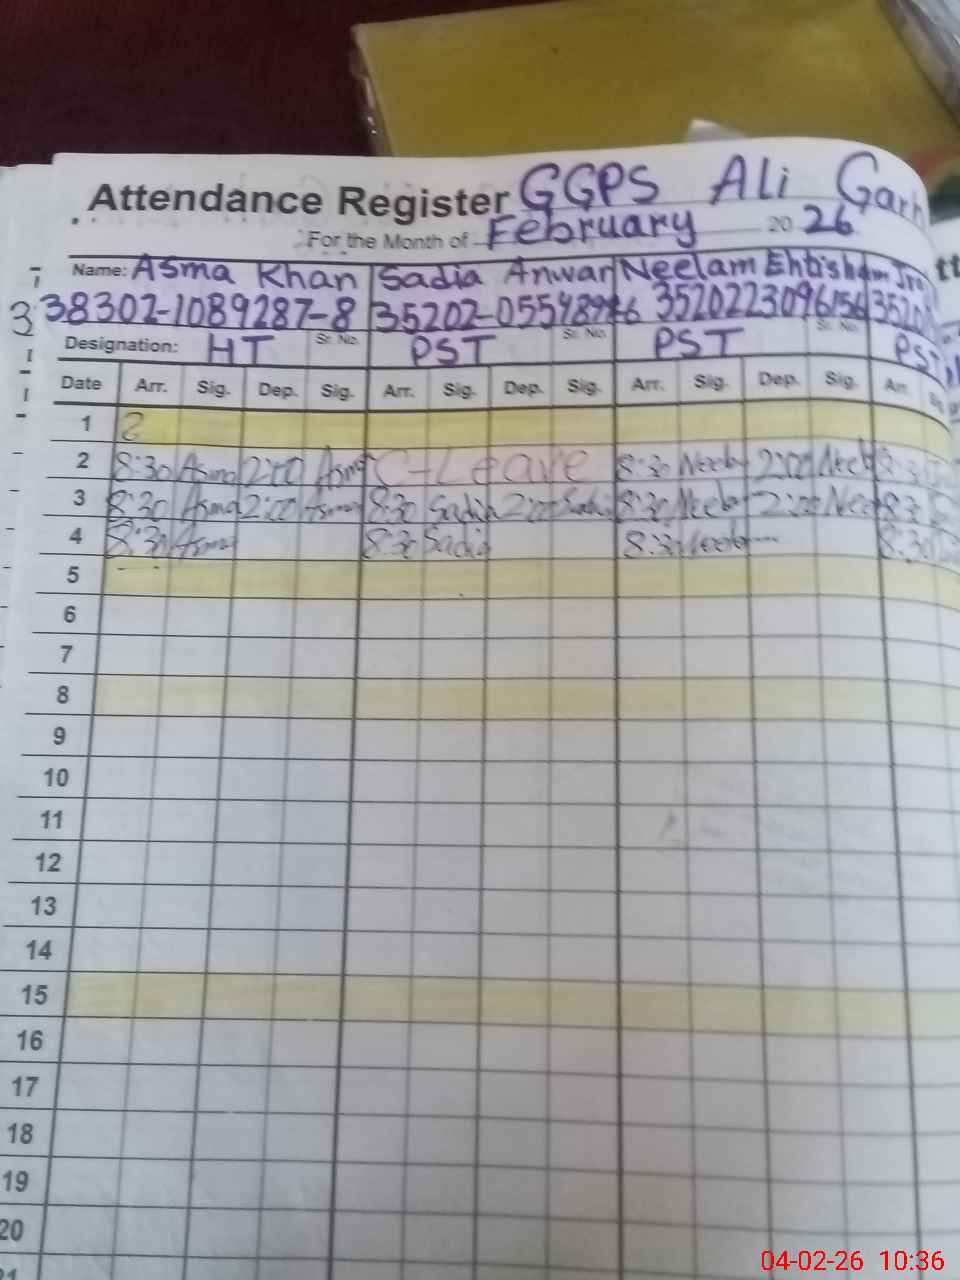 Attendance Register GGPS Ali Garh
For the Month of February 2026
Name: Asma Khan Sadia Anwar Neelam Ehtisham
38302-1089287-8 35202- 3520223096156 3520
Designation: HT Sr. No. PST Sr. No. PST Sr. No. PST
Date Arr. Sig. Dep. Sig. Arr. Sig. Dep. Sig. Arr. Sig. Dep. Sig. Arr.
1 2
2 8:30 Asma 2:00 Asma C-Leave 8:30 Neel 2:00 Neel 8:3
3 8:30 Asma 2:00 Asma 8:30 Sadia 2:00 Sadia 8:30 Neel 2:00 Neel 8:3
4 8:30 Asma 8:30 Sadia 8:30 Neel 8:30
5
6
7
8
9
10
11
12
13
14
15
16
17
18
19
20
21
04-02-26 10:36